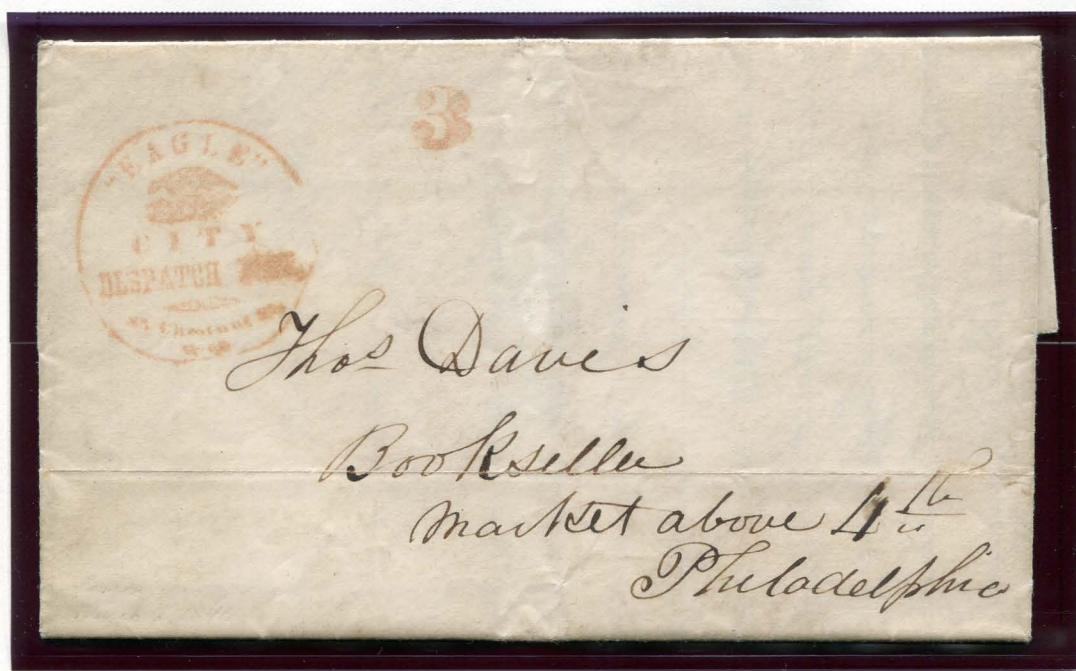 3
"EAGLE"
CITY
DESPATCH
Chestnut
Thos Davis
Bookseller
Market above 4th
Philadelphia